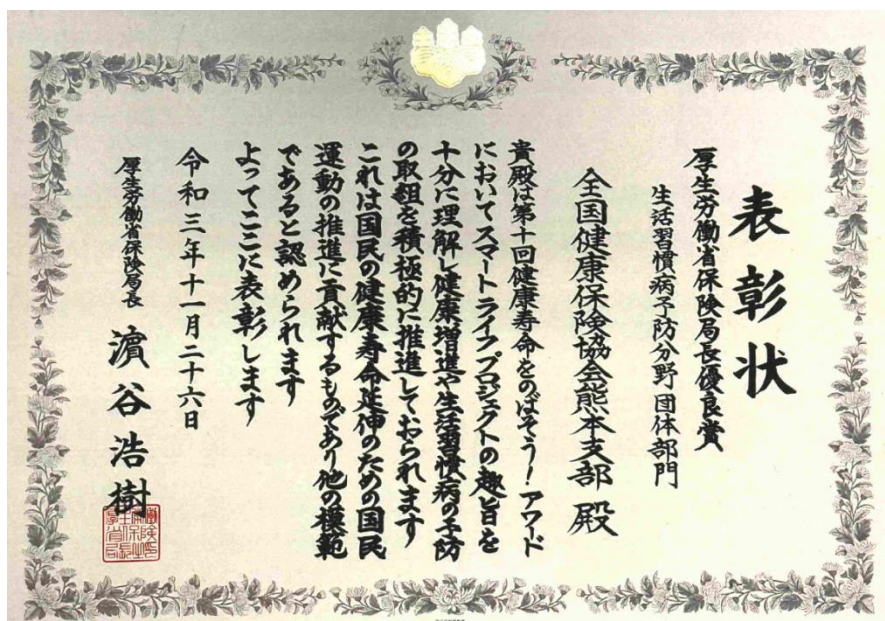 表彰状
厚生労働省保険局長優良賞
生活習慣病予防分野団体部門
全国健康保険協会熊本支部 殿
貴殿は第十回健康寿命をのばそう!アワード
においてスマートライフプロジェクトの趣旨を
十分に理解し健康増進や生活習慣病の予防
の取組を積極的に推進しておられます
これは国民の健康寿命延伸のための国民
運動の推進に貢献するものであり他の模範
であると認められます
よってここに表彰します
令和三年十一月二十六日
厚生労働省保険局長 濵谷浩樹